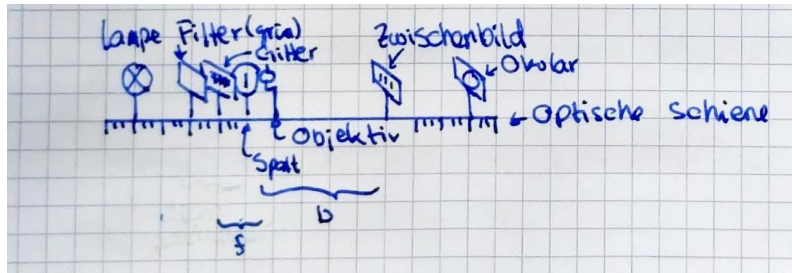 Lampe Filter(grün)
Gitter
Zwischenbild
Okular
Optische Schiene
Objektiv
Spalt
b
f